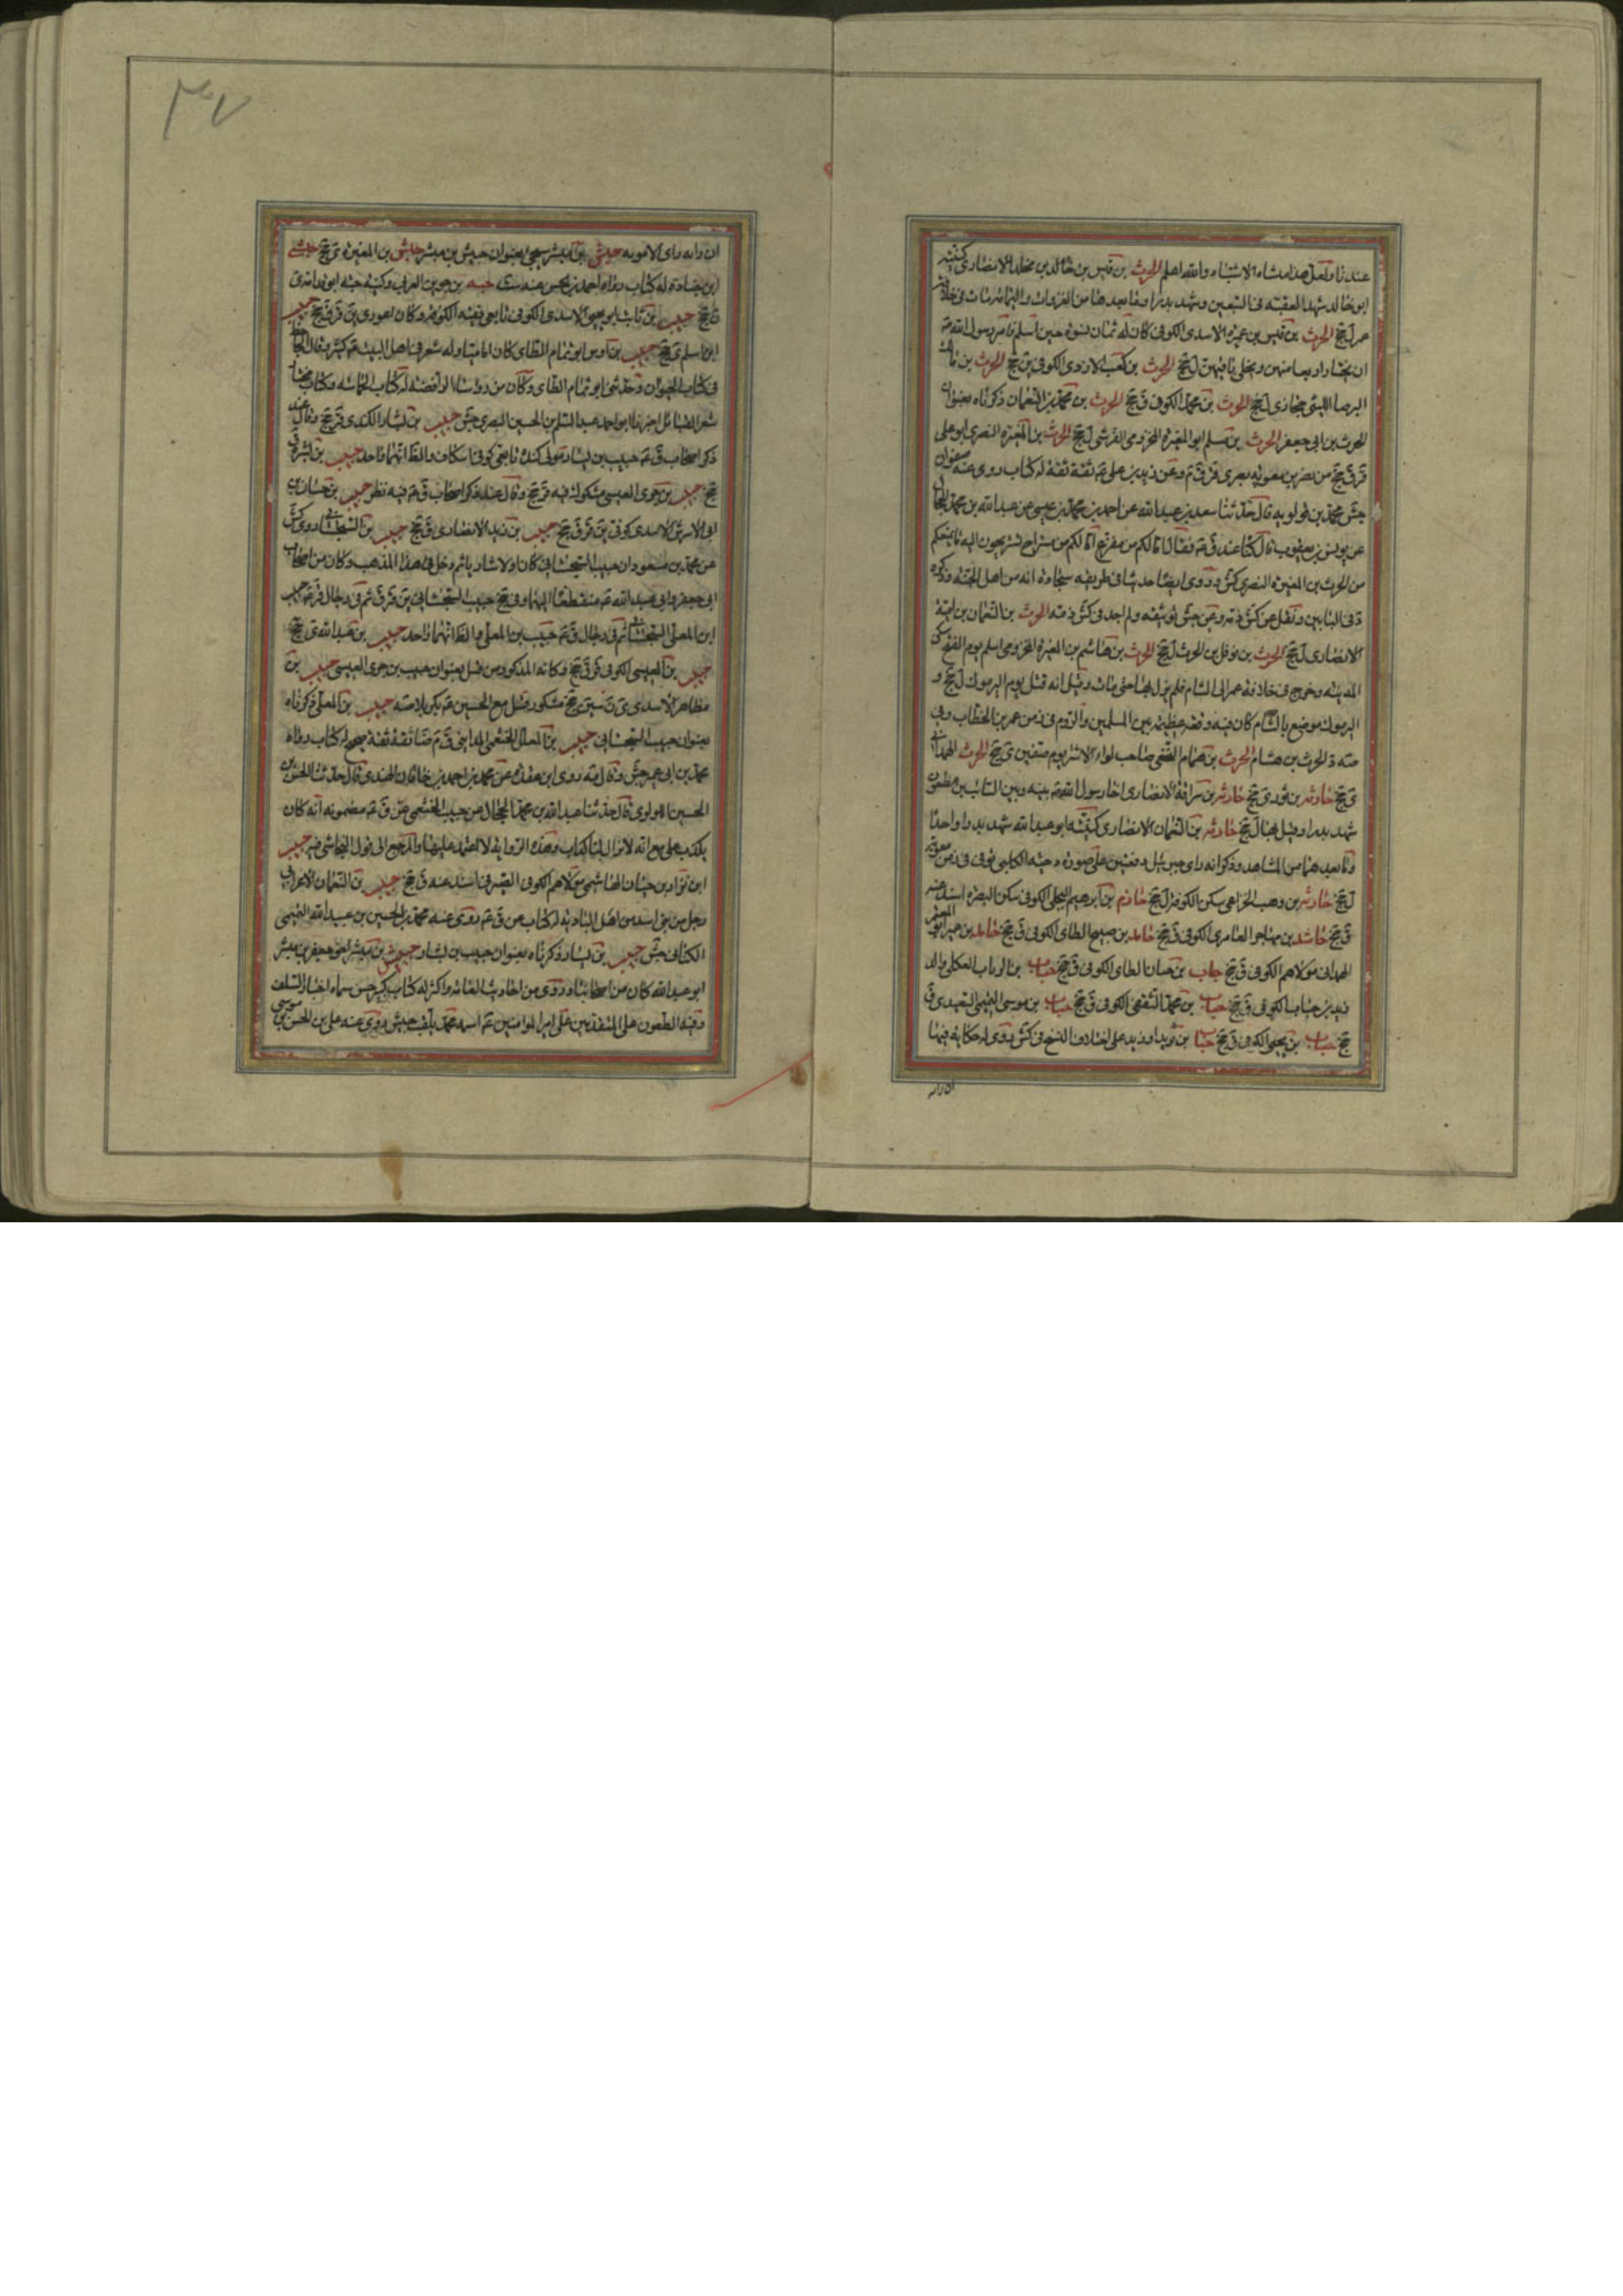 عندنا ولعل هذا منشاء الاشتباه والله اعلم الحرث بن قيس بن خالد بن مخلد الانصارى كنيته
ابو خالد شهد العقبة فى السبعين وشهد بدرا وما بعدها من الغزوات واليمامة ومات فى خلافة
عمر ل جخ الحرث بن قيس بن عميرة الاسدى الكوفى كان له ثمان نسوة حين اسلم فامره رسول الله ص
ان يختار اربعا منهن ويخلى باقيهن ل جخ الحرث بن كعب الازدى الكوفى ين جخ الحرث بن مالك
البرصا الليثى حجازى ل جخ الحرث بن محمد الكوفى ق جخ الحرث بن محمد بن النعمان ذكرناه بعنوان
الحرث بن ابى جعفر الحرث بن مسلم ابو المغيرة المخزومى القرشى ل جخ الحرث بن المغيرة النصرى ابو على
قر ق جخ من نصر بن معوية بصرى قر ق م وعن زيد بن على ع ثقة ثقة له كتاب روى عنه صفوان
جش محمد بن قولويه قال حدثنا سعد بن عبدالله عن احمد بن محمد بن عيسى عن عبدالله بن محمد الحجال
عن يونس بن يعقوب قال كنا عند ق ع فقال اما لكم من مفزع اما لكم من مستراح تستريحون اليه ما يمنعكم
من الحرث بن المغيرة النصرى كش وروى ايضا حديثا فى طريقه سجادة انه من اهل الجنة وذكره
د فى البابين ونقل عن كش ذمه وعن جش توثيقه ولم اجد فى كش ذمه الحرث بن النعمان بن امية
الانصارى ل جخ الحرث بن نوفل بن الحرث ل جخ الحرث بن هاشم بن المغيرة المخزومى اسلم يوم الفتح سكن
المدينة وخرج فى خلافة عمر الى الشام فلم يزل بها حتى مات وقيل انه قتل يوم اليرموك ل جخ و
اليرموك موضع بالشام كان فيه وقعة عظيمة بين المسلمين والروم فى زمن عمر بن الخطاب وفى
صه د الحرث بن هشام الحرث بن همام النخعى صاحب لواء الاشتر يوم صفين ى جخ الحرث الهمدانى
ى جخ حارثة بن ثور ى جخ حارثة بن سراقة الانصارى اخا رسول الله ص بينه وبين السائب بن مظعون
شهد بدرا وقتل بها ل جخ حارثة بن النعمان الانصارى كنيته ابو عبدالله شهد بدرا واحدا
وما بعدهما من المشاهد وذكر انه راى جبرئيل دفعتين على صورة دحية الكلبى توفى فى زمن معوية
ل جخ حارثة بن وهب الخزاعى سكن الكوفة ل جخ حازم بن ابرهيم البجلى الكوفى سكن البصرة اسند عنه
ق جخ حاشد بن مهاجر العامرى الكوفى ق جخ حامد بن صبيح الطائى الكوفى ق جخ حامد بن عمير ابو المعتمر
الهمدانى مولاهم الكوفى ق جخ حباب بن حسان الطائى الكوفى ق جخ حباب بن الرباب العكلى والد
زيد بن حباب الكوفى ق جخ حباب بن محمد الثقفى الكوفى ق جخ حباب بن موسى التميمى السعيدى ق
جخ حباب بن يحيى الكوفى ق جخ حبابة بن يزيد او زيد على اختلاف النسخ فى كش روى له حكاية فيها
ان رايه
٣٧
ان رايه راى الاموية حبش بن مبشر سيجئ بعنوان حبيش بن مبشر حبش بن المغيرة ى جخ حبشى
ابن جنادة له كتاب رواه احمد بن الحسن عنه ست حبة بن جوين العرنى وكنية حبة ابو قدامة ى
ن جخ حبيب بن ثابت ابو يحيى الاسدى الكوفى تابعى فقيه الكوفة وكان اعور ى ين قر ق جخ حبيب
ابن اسلم ى جخ حبيب بن اوس ابو تمام الطائى كان اماميا وله شعر فى اهل البيت ع كثير وقال الجاحظ
فى كتاب الحيوان وحدثنى ابو تمام الطائى وكان من رؤساء الرافضة له كتاب الحماسة وكتاب مختار
شعر القبائل اخبرنا ابو احمد عبد السلم بن الحسين البصرى جش حبيب بن بشار الكندى قر جخ وقال عند
ذكر اصحاب ق ع حبيب بن بشار مولى كندة تابعى كوفى اسكاف والظ انهما واحد حبيب بن بشر ق
جخ حبيب بن جرى العبسى مشكوك فيه قر جخ وقال عند ذكر اصحاب ق ع فيه نظر حبيب بن حسان بن
ابى الاشرس الاسدى كوفى ين قر ق جخ حبيب بن زيد الانصارى ق جخ حبيب بن السجستانى روى كش
عن محمد بن مسعود ان حبيب السجستانى كان اولا شاريا ثم دخل فى هذا المذهب وكان من اصحاب
ابى جعفر وابى عبدالله ع منقطعا اليهما وفى جخ حبيب السجستانى ين قر ق ثم فى رجال قر ع حبيب
ابن المعلى السجستانى ثم فى رجال ق ع حبيب بن المعلى والظ انهما واحد حبيب بن عبدالله ى جخ
حبيب بن العبسى الكوفى قر ق جخ وكانه المذكور من قبل بعنوان حبيب بن جرى العبسى حبيب بن
مظاهر الاسدى ى ن سين جخ مشكور قتل مع الحسين ع بكربلا صه حبيب بن المعلى ذكرناه
بعنوان حبيب السجستانى حبيب بن المعلل الخثعمى المداينى ق م ضا ثقة ثقة صحيح له كتاب رواه
محمد بن ابى عمير جش وقال صه روى ابن عقدة عن محمد بن احمد بن خاقان النهدى قال حدثنا الحسن بن
الحسين اللؤلوى قال حدثنا عبدالله بن محمد الحجال عن حبيب الخثعمى عن ق ع مضمونه انه كان
يكذب على مع انه لا يزال لنا كذاب وهذه الرواية لا اعتمد عليها والمرجع الى قول النجاشى فيه حبيب
ابن نزار بن حيان الهاشمى مولاهم الكوفى الصيرفى اسند عنه ق جخ حبيب بن النعمان الاعرابى
رجل من بنى اسد من اهل البادية له كتاب عن ق ع روى عنه محمد بن الحسين بن عبيدالله التميمى
الكنانى جش حبيب بن يسار ذكرناه بعنوان حبيب بن بشار حبيش بن مبشر اخو جعفر بن مبشر
ابو عبدالله كان من اصحابنا وروى من احاديث العامة واكثر له كتاب كبير حسن سماه اخبار السلف
وفيه الطعون على المتقدمين على امير المؤمنين ع اسمه محمد يلقب حبيش روى عنه على بن الحسن بن موسى